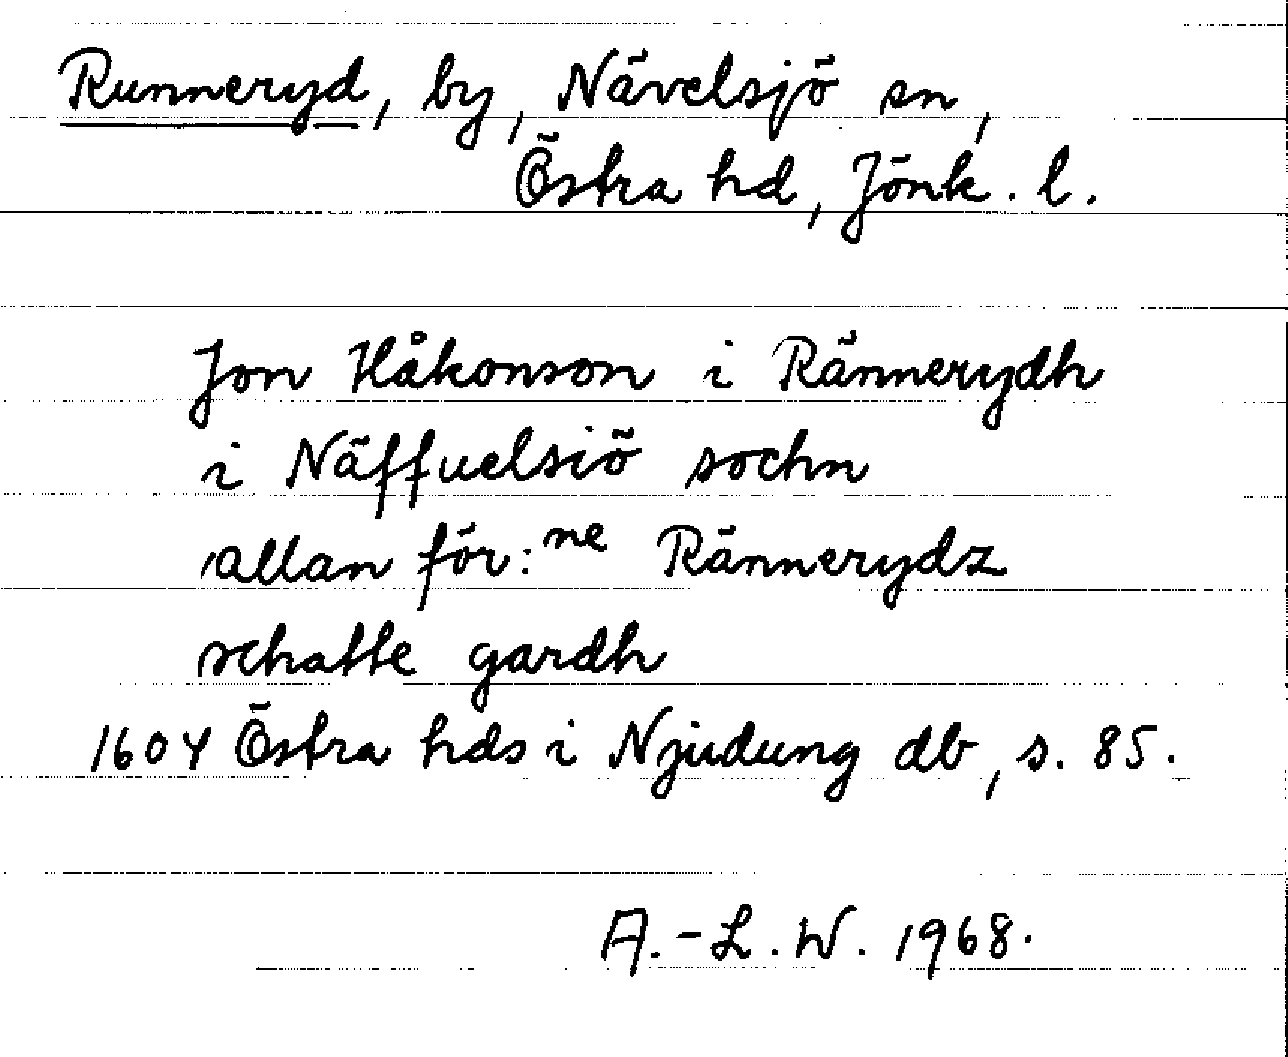 Runneryd, by, Nävelsjö sn,
Östra hd, Jönk. l.
Jon Håkonson i Rännerydh
i Näffuelsiö sochn
allan för:ne Rännerydz
schatte gardh
1604 Östra hds i Njudung db, s. 85.
A.-L. W. 1968.